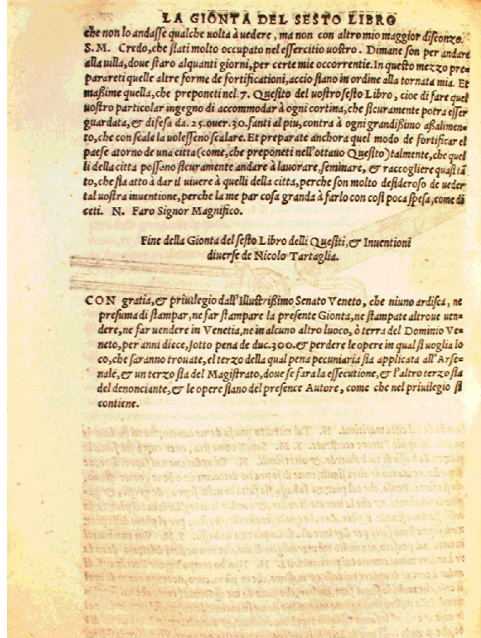 LA GIONTA DEL SESTO LIBRO
che non lo andasse qualche uolta à uedere, ma non con altro mio maggior disconzo.
S.M. Credo, che stati molto occupato nel essercitio uostro. Dimane son per andare
alla uilla, doue staro alquanti giorni, per certe mie occorrentie. In questo mezzo pre
parareti quelle altre forme de fortificationi, accio siano in ordine alla tornata mia. Et
maßime quella, che preponeti nel 7. Quesito del uostro sesto Libro, cioe di fare quel
uostro particular ingegno di accommodar à ogni cortina, che sicuramente potra esser
guardata, & difesa da. 25. ouer. 30. fanti al piu, contra à ogni grandißimo aßalimen-
to, che con scale la uolesseno scalare. Et preparate anchora quel modo de fortificar el
paese atorno de una citta (come, che preponeti nell'ottauo Quesito) talmente, che quel
li della citta possono sicuramente andare à lauorare, seminare, & raccogliere quasi tā
to, che sia atto à dar il uiuere à quelli della citta, perche son molto desideroso de ueder
tal uostra inuentione, perche la me par cosa granda à farlo con così poca spesa, come di
ceti. N. Faro Signor Magnifico.
Fine della Gionta del sesto Libro delli Quesiti, & Inuentioni
diuerse de Nicolo Tartaglia.
CON gratia, & priuilegio dall'Illustrißimo Senato Veneto, che niuno ardisca, ne
presuma di stampar, ne far stampare la presente Gionta, ne stampate altroue uen-
dere, ne far uendere in Venetia, ne in alcuno altro luoco, ò terra del Dominio Ve=
neto, per anni diece, sotto pena de duc. 300. & perdere le opere in qual si uoglia lo
co, che saranno trouate, el terzo della qual pena pecuniaria sia applicata all'Arse-
nale, & un terzo sia del Magistrato, doue se fara la essecutione, & l'altro terzo sia
del denonciante, & le opere siano del presence Autore, come che nel priuilegio si
contiene.